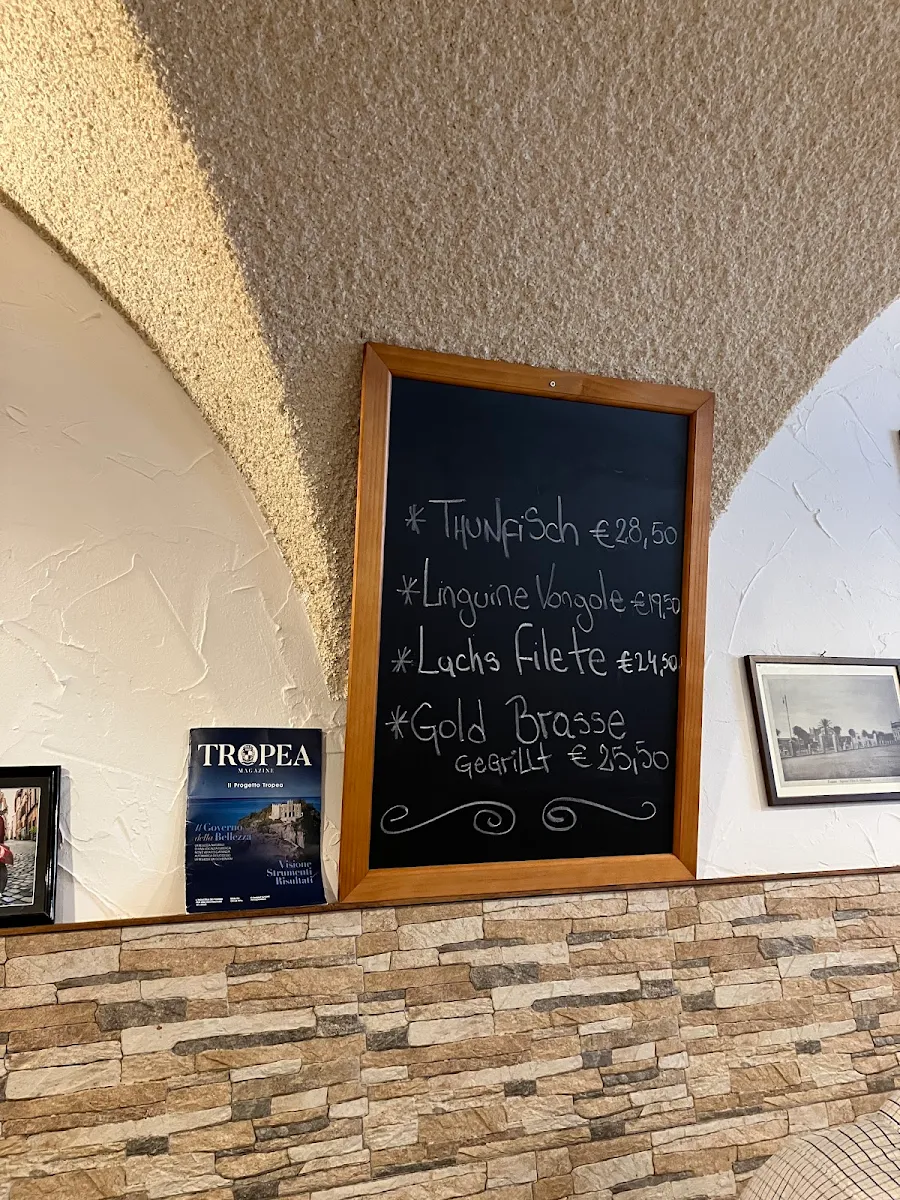 *Thunfisch €28,50
*Linguine Vongole €19,50
*Lachs Filete €24,50
*Gold Brasse
gegrillt €25,50
TROPEA
MAGAZINE
Il Progetto Tropea
Il Governo
della Bellezza
Visione
Strumenti
Risultati